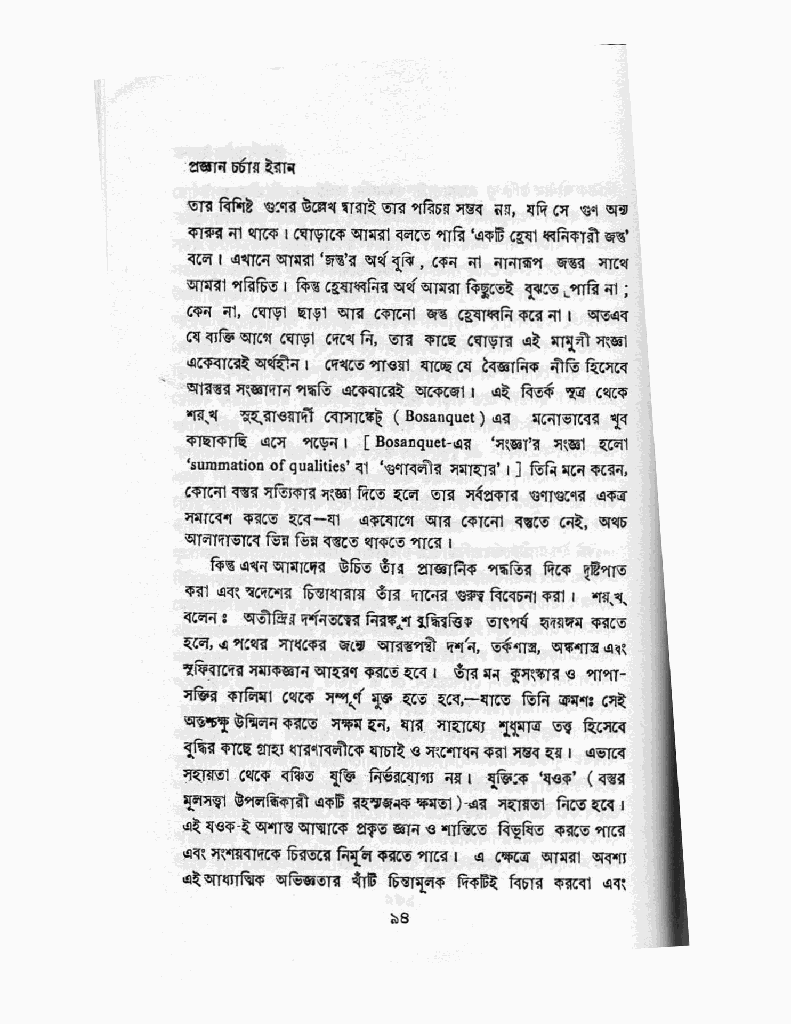 প্রজ্ঞান চর্চায় ইরান
তার বিশিষ্ট গুণের উল্লেখ দ্বারাই তার পরিচয় সম্ভব নয়, যদি সে গুণ অন্য
কারুর না থাকে। ঘোড়াকে আমরা বলতে পারি ‘একটি হ্রেষা ধ্বনিকারী জন্তু’
বলে। এখানে আমরা ‘জন্তু’র অর্থ বুঝি, কেন না নানারূপ জন্তুর সাথে
আমরা পরিচিত। কিন্তু হ্রেষাধ্বনির অর্থ আমরা কিছুতেই বুঝতে পারি না;
কেন না, ঘোড়া ছাড়া আর কোনো জন্তু হ্রেষাধ্বনি করে না। অতএব
যে ব্যক্তি আগে ঘোড়া দেখে নি, তার কাছে ঘোড়ার এই মামুলী সংজ্ঞা
একেবারেই অর্থহীন। দেখতে পাওয়া যাচ্ছে যে বৈজ্ঞানিক নীতি হিসেবে
আরস্তুর সংজ্ঞাদান পদ্ধতি একেবারেই অকেজো। এই বিতর্ক সূত্র থেকে
শয়্‌খ সুহ্‌রাওয়ার্দী বোসাঙ্কেট্‌ ( Bosanquet ) এর মনোভাবের খুব
কাছাকাছি এসে পড়েন। [ Bosanquet-এর ‘সংজ্ঞা’র সংজ্ঞা হলো
‘summation of qualities’ বা ‘গুণাবলীর সমাহার’। ] তিনি মনে করেন,
কোনো বস্তুর সত্যিকার সংজ্ঞা দিতে হলে তার সর্বপ্রকার গুণাগুণের একত্র
সমাবেশ করতে হবে—যা একযোগে আর কোনো বস্তুতে নেই, অথচ
আলাদাভাবে ভিন্ন ভিন্ন বস্তুতে থাকতে পারে।
কিন্তু এখন আমাদের উচিত তাঁর প্রাজ্ঞানিক পদ্ধতির দিকে দৃষ্টিপাত
করা এবং স্বদেশের চিন্তাধারায় তাঁর দানের গুরুত্ব বিবেচনা করা। শয়্‌খ্‌
বলেন ঃ অতীন্দ্রিয় দর্শনতত্ত্বের নিরঙ্কুশ বুদ্ধিবৃত্তিক তাৎপর্য হৃদয়ঙ্গম করতে
হলে, এ পথের সাধকের জন্যে আরস্তুপন্থী দর্শন, তর্কশাস্ত্র, অঙ্কশাস্ত্র এবং
সুফিবাদের সম্যকজ্ঞান আহরণ করতে হবে। তাঁর মন কুসংস্কার ও পাপা-
সক্তির কালিমা থেকে সম্পূর্ণ মুক্ত হতে হবে,—যাতে তিনি ক্রমশঃ সেই
অন্তশ্চক্ষু উন্মিলন করতে সক্ষম হন, যার সাহায্যে শুধুমাত্র তত্ত্ব হিসেবে
বুদ্ধির কাছে গ্রাহ্য ধারণাবলীকে যাচাই ও সংশোধন করা সম্ভব হয়। এভাবে
সহায়তা থেকে বঞ্চিত যুক্তি নির্ভরযোগ্য নয়। যুক্তিকে ‘যওক’ ( বস্তুর
মূলসত্ত্বা উপলব্ধিকারী একটি রহস্যজনক ক্ষমতা )-এর সহায়তা নিতে হবে।
এই যওক-ই অশান্ত আত্মাকে প্রকৃত জ্ঞান ও শান্তিতে বিভূষিত করতে পারে
এবং সংশয়বাদকে চিরতরে নির্মূল করতে পারে। এ ক্ষেত্রে আমরা অবশ্য
এই আধ্যাত্মিক অভিজ্ঞতার খাঁটি চিন্তামূলক দিকটিই বিচার করবো এবং
৯৪